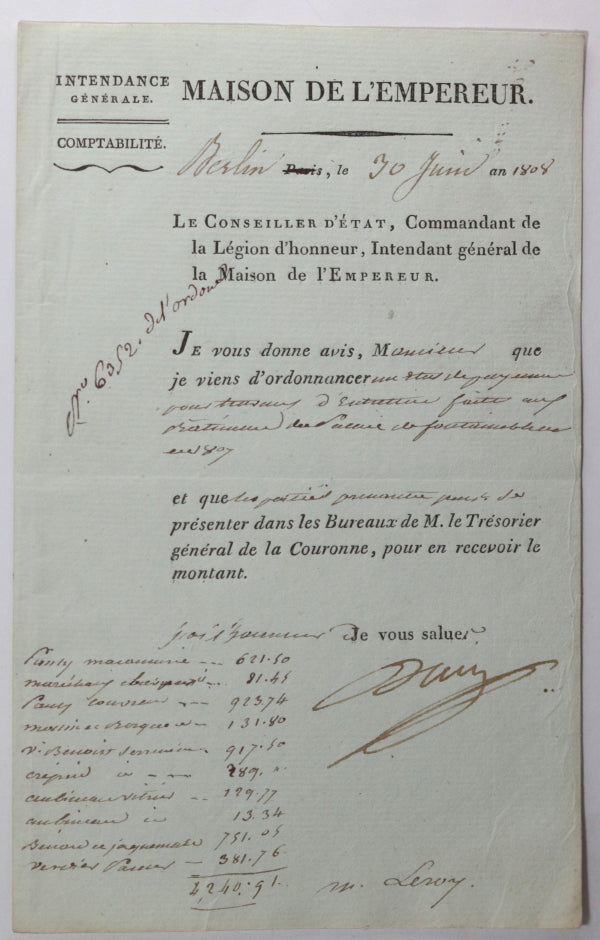 INTENDANCE
GÉNÉRALE.
COMPTABILITÉ.
MAISON DE L'EMPEREUR.
Berlin Paris, le 30 Juin an 1808
LE CONSEILLER D'ÉTAT, Commandant de
la Légion d'honneur, Intendant général de
la Maison de l'EMPEREUR.
N.º 6352. de l'ordon
JE vous donne avis, Monsieur que
je viens d'ordonnancer un état de payement
pour travaux d'Entretien faits aux
du Palais de fontainebleau
en 1807
et que les parties prenantes peuvent se
présenter dans les Bureaux de M. le Trésorier
général de la Couronne, pour en recevoir le
montant.
j'ai l'honneur de Je vous saluer
Pauly maconnerie -- 621.50
81.45
Pauly couvreur -- 923.74
131.80
v.e Benoist Serrurier 917.50
crépin id -- 289. "
aubineau vitrier -- 129.77
aubineau id 13.34
751.05
Verdier Paveur -- 381.76
4,240.91.
Daru
m. Leroy.